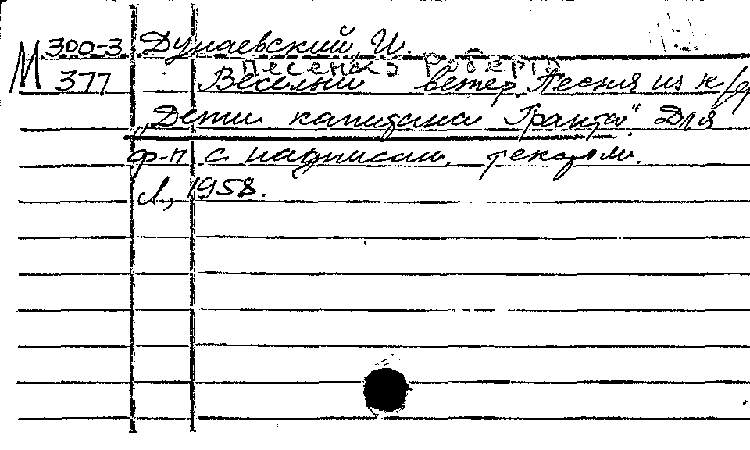 М 300-3 Дунаевский, И.
песенка Роберта
377 Веселый ветер. Песня из к/ф
„Дети капитана Гранта". Для
ф-п с надписан. текстом.
Л., 1958.